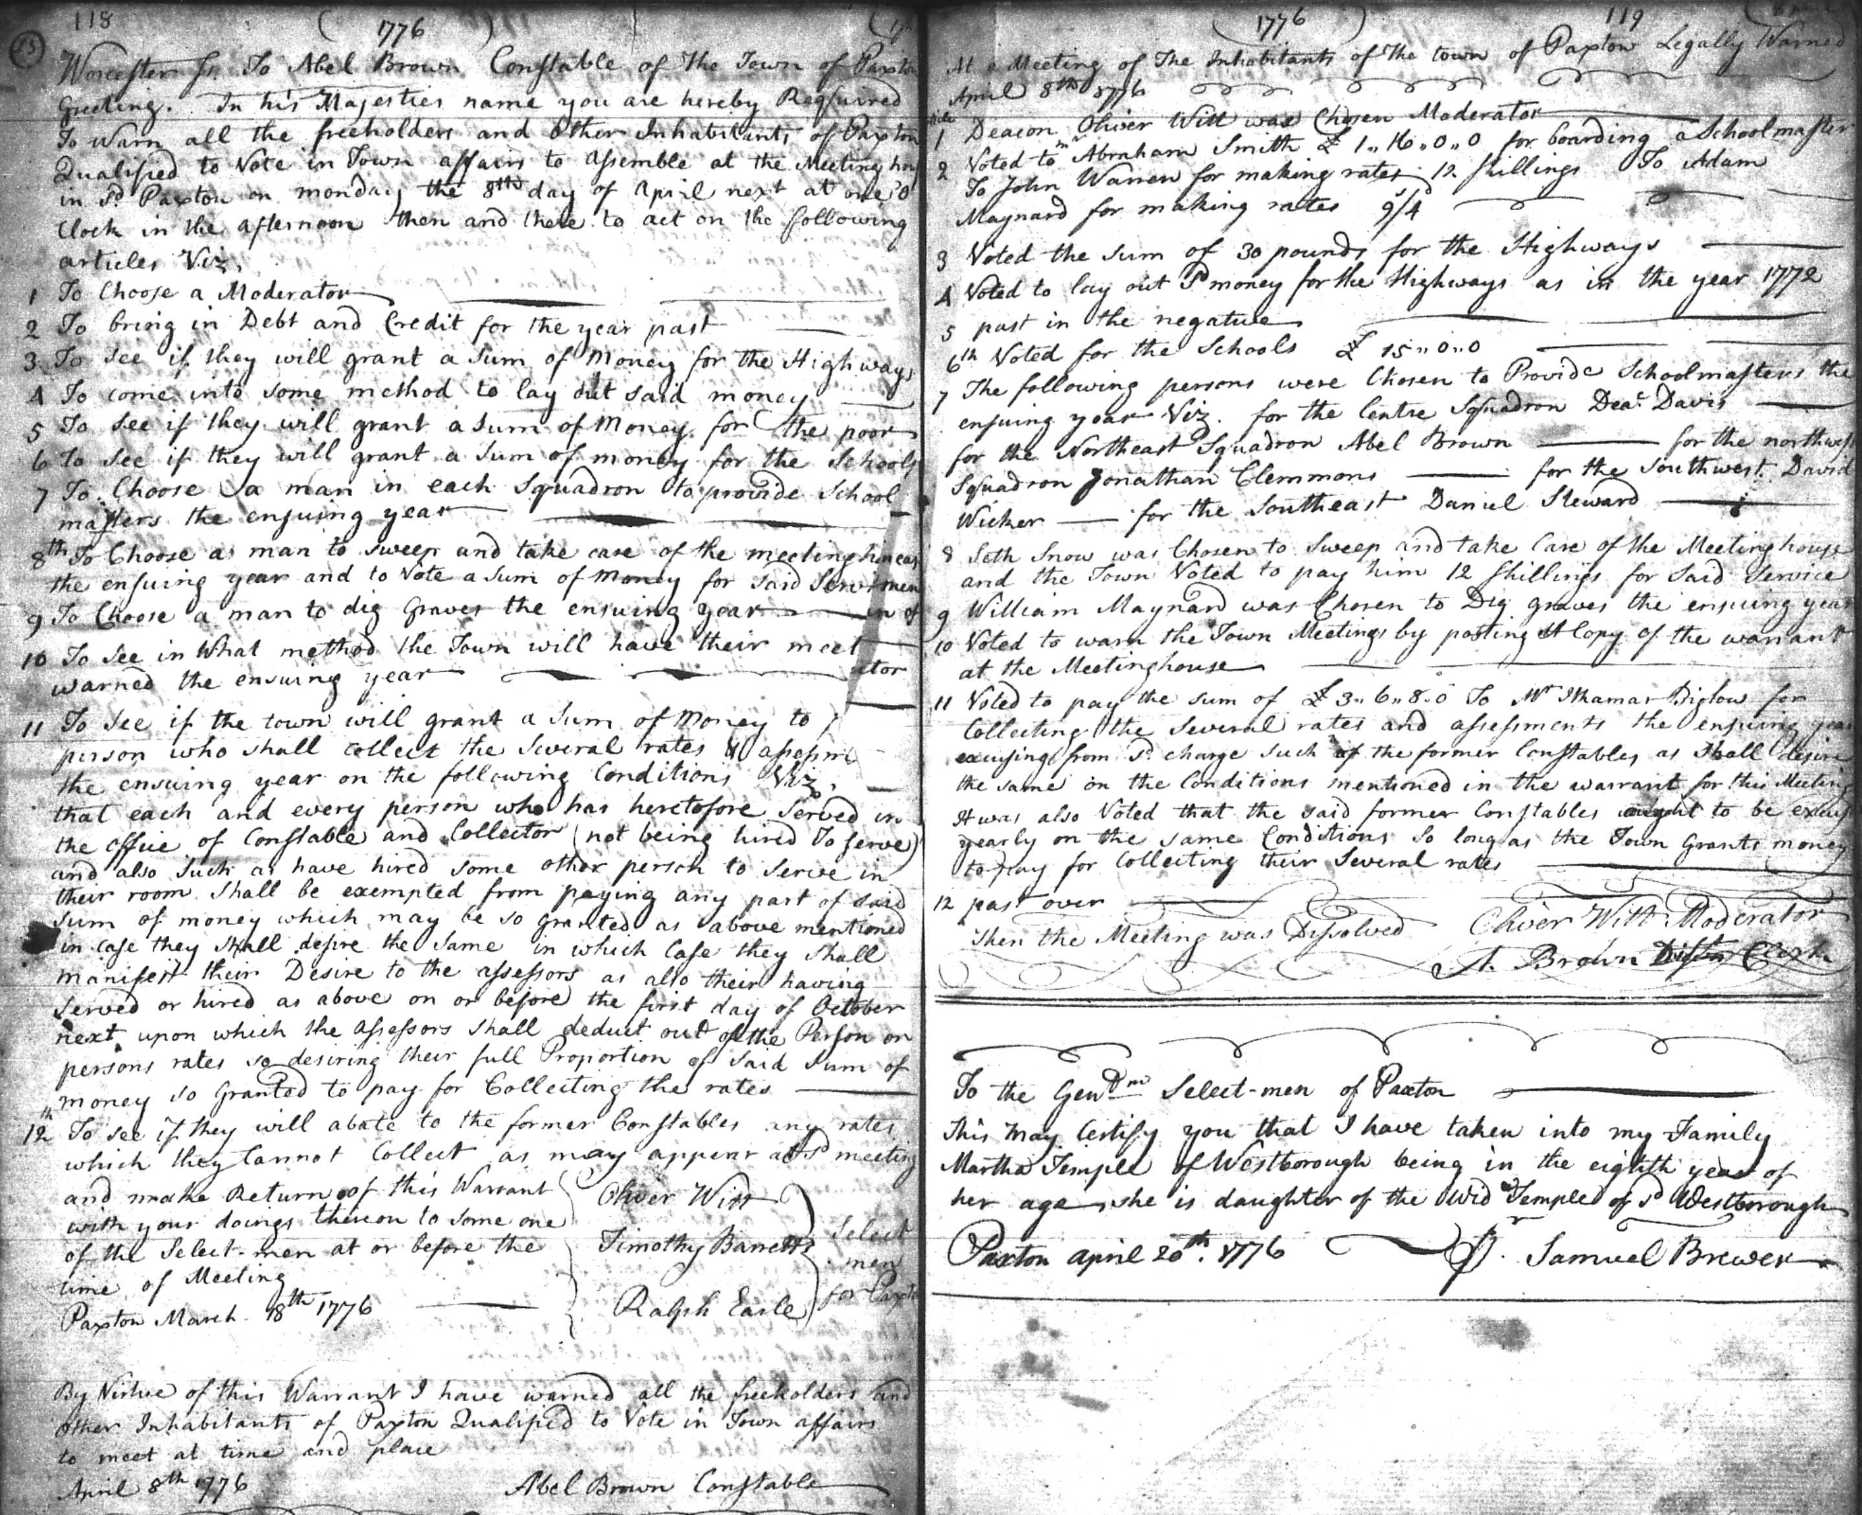 118
( 1776 )
53
Worcester ss. To Abel Brown Constable of The Town of Paxton
Greeting. In his Majesties name you are hereby Reqquired
To Warn all the freeholders and Other Inhabitants of Paxton
Qualified to Vote in Town affairs to assemble at the Meeting hou
in Sd Paxton on monday the 8th day of April next at one O
Clock in the afternoon then and there to act on the following
articles Viz.
1 To Choose a Moderator
2 To bring in Debt and Credit for the year past
3 To See if they will grant a Sum of Money for the Highways
4 To come into some method to lay out said money
5 To See if they will grant a Sum of Money for the poor
6 to See if they will grant a Sum of money for the Schools
7 To Choose a man in each Squadron to provide School
masters the ensuing year
8th To Choose a man to sweep and take care of the meeting house
the ensuing year and to Vote a Sum of Money for Said Serv men
9 To Choose a man to dig Graves the ensuing year in of
10 To See in What method the Town will have their meet
warned the ensuing year ator
11 To See if the town will grant a Sum of Money to
person who shall collect the Several rates & assessm
the ensuing year on the following Conditions Viz.
that each and every person who has heretofore Served in
the office of Constable and Collector (not being hired To serve)
and also Such as have hired some other person to Serve in
their room Shall be exempted from paying any part of said
Sum of money which may be so granted as above mentioned
in case they Shall desire the Same in which Case they Shall
manifest their Desire to the assessors as also their having
Served or hired as above on or before the first day of October
next upon which the assessors shall deduct out of the Person or
persons rates so desiring their full Proportion of Said Sum of
money so Granted to pay for Collecting the rates
12th To See if they will abate to the former Constables any rates
which they Cannot Collect as may appear at Sd meeting
and make Return of this Warrant
with your doings thereon to Some one
of the Select-men at or before the
time of Meeting
Paxton March 18th 1776
Oliver Witt
Timothy Barrett
Ralph Earle
Select
men
for Paxto
By Virtue of this Warrant I have warned all the freeholders and
Other Inhabitants of Paxton Qualified to Vote in Town affairs
to meet at time and place
April 8th 1776 Abel Brown Constable
( 1776 )
119
At a Meeting of The Inhabitants of The town of Paxton Legally Warned
April 8th 1776
1 Deacon Oliver Witt was Chosen Moderator
2 Voted to mr Abraham Smith £ 1,, 16,, 0,, 0 for boarding a Schoolmaster
To John Warren for making rates 12 Shillings To Adam
Maynard for making rates 9s/4d
3 Voted the Sum of 30 pounds for the Highways
4 Voted to lay out Sd money for the Highways as in the year 1772
5 past in the negative
6th Voted for the Schools £ 15,, 0,, 0
7 The following persons were Chosen to Provide Schoolmasters the
ensuing year Viz. for the Centre Squadron Dean Davis
for the Northeast Squadron Abel Brown for the northwes
Squadron Jonathan Clemmons for the Southwest David
Wicker for the Southeast Daniel Steward
8 Seth Snow was Chosen to Sweep and take Care of the Meeting house
and the Town Voted to pay him 12 Shillings for Said Service
9 William Maynard was Chosen to Dig graves the ensuing year
10 Voted to warn the Town Meetings by posting A Copy of the warrant
at the Meetinghouse
11 Voted to pay the sum of £ 3,, 6,, 8,, 0 To Mr Ithamar Biglow for
Collecting the Several rates and assessments the ensuing year
excusing from Sd charge Such of the former Constables as Shall desire
the same on the Conditions mentioned in the warrant for this Meeting
It was also Voted that the said former Constables ought to be excus
yearly on the same Conditions So long as the Town Grants money
to pay for Collecting their Several rates
12 past over
Then the Meeting was Dissolved Oliver Witt Moderator
A. Brown Clerk
To the Gentmn Select-men of Paxton
This May Certify you that I have taken into my Family
Martha Temple of Westborough being in the eighth year of
her age she is daughter of the Wid Temple of sd Westborough
Paxton April 20th. 1776 Pr. Samuel Brewer